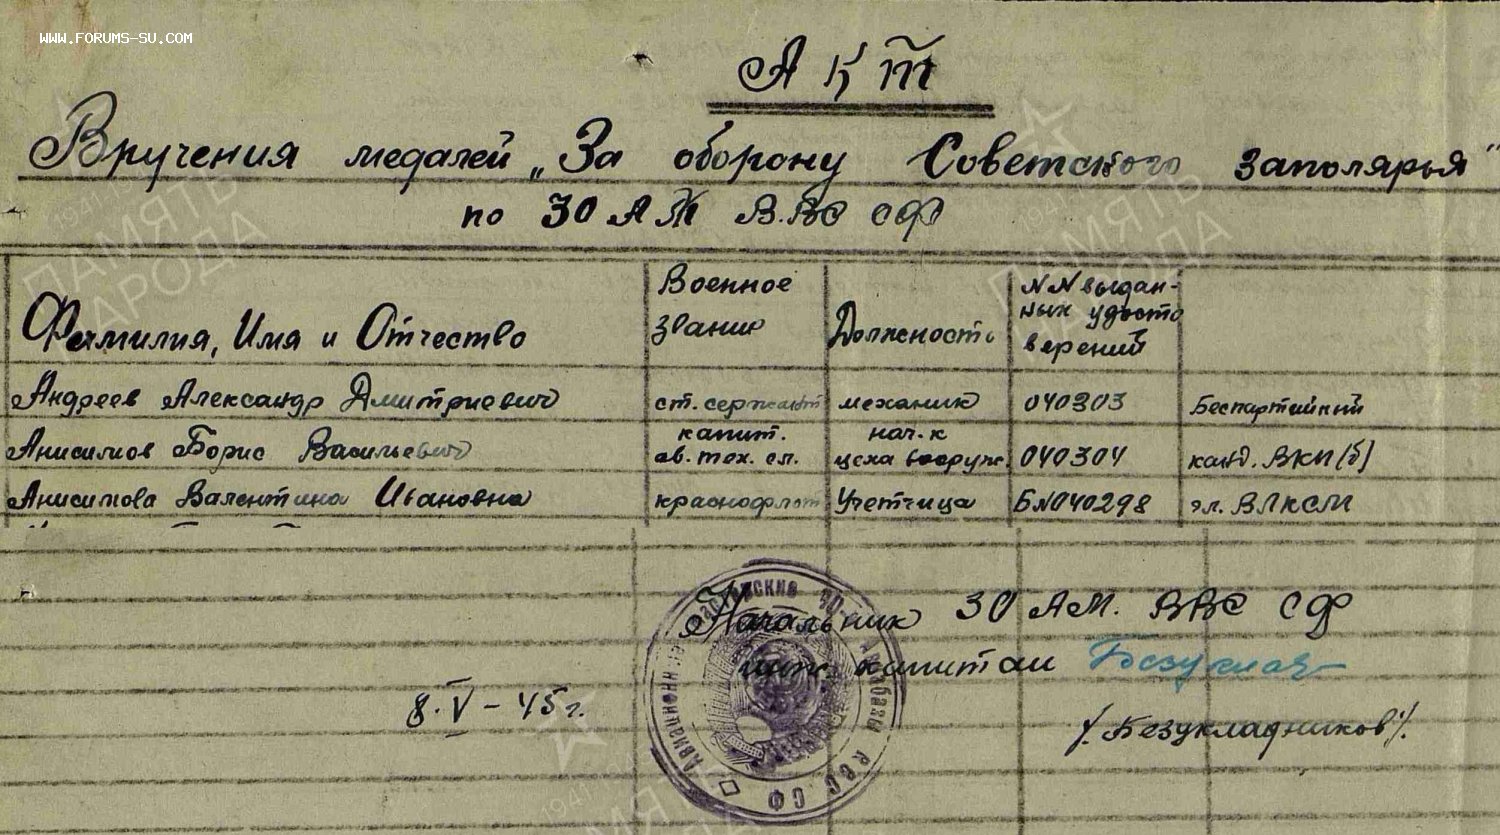 WWW.FORUMS-SU.COM
Акт
Вручения медалей „За оборону Советского заполярья"
по 30 АМ ВВС СФ
Фамилия, Имя и Отчество
Военное звание
Должность
NN выдан-
ных удосто
верений
Андреев Александр Дмитриевич ст. сержант механик 040303 Беспартийный
Анисимов Борис Васильевич капит. ав. тех. сл. нач-к цеха вооруж. 040304 канд. ВКП(б)
Анисимова Валентина Ивановна краснофлот Учетчица БN040298 чл. ВЛКСМ
Начальник 30 АМ. ВВС СФ
инж. капитан
8.V-45г.
/.Безукладников/.
ПАМЯТЬ НАРОДА
ПАМЯТЬ НАРОДА
1941